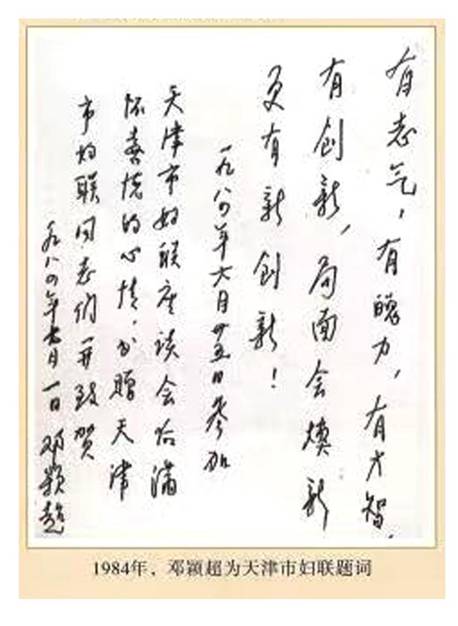 有志气，有魄力，有才智，
有创新，局面会焕新
更有新创新！
一九八四年六月廿五日参加
天津市妇联座谈会后满
怀喜悦的心情，书赠天津
市妇联同志们并致贺
一九八四年七月一日 邓颖超
1984年，邓颖超为天津市妇联题词